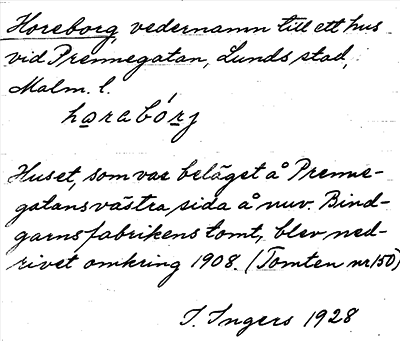 Horeborg, vedernamn till ett hus
vid Prennegatan, Lunds stad,
Malm. l.
horabórj
Huset, som var beläget å Prenne-
gatans västra sida å nuv. Bind-
garnsfabrikens tomt, blev ned-
rivet omkring 1908. (Tomten nr 150)
I. Ingers 1928